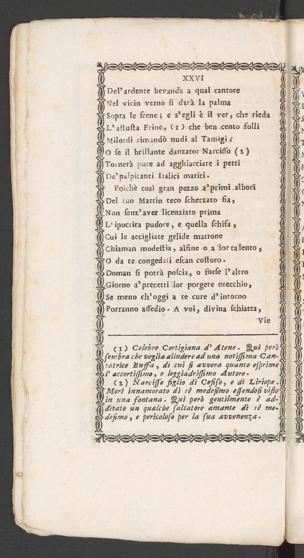 XXVI
Del'ardente bevanda a qual cantore
Nel vicin verno si darà la palma
Sopra le scene; e s'egli è il ver, che rieda
L'astuta Frine, (1) che ben cento folli
Milordi rimandò nudi al Tamigi;
O se il brillante danzator Narcisso (2)
Tornerà pure ad agghiacciare i petti
De' palpitanti Italici mariti.
Poichè così gran pezzo a' primi albori
Del tuo Mattin teco scherzato fia,
Non senz'aver licenziato prima
L'ipocrita pudore, e quella schifa,
Cui le accigliate gelide matrone
Chiaman modestia, alfine o a lor talento,
O da te congedati escan costoro.
Doman si potrà poscia, o forse l'altro
Giorno a' precetti lor porgere orecchio,
Se meno ch'oggi a te cure d'intorno
Porranno assedio. A voi, divina schiatta,
Vie
(1) Celebre Cortigiana d'Atene. Quì però
sembra che voglia alludere ad una notissima Can-
tatrice Buffa, di cui si avvera quanto esprime
l'accortissimo, e leggiadrissimo Autore.
(2) Narcisso figlio di Cefiso, e di Liriope.
Morì innamorato di sè medesimo essendosi visto
in una fontana. Quì però gentilmente è ad-
ditato un qualche saltatore amante di sè me-
desimo, e pericoloso per la sua avvenenza.